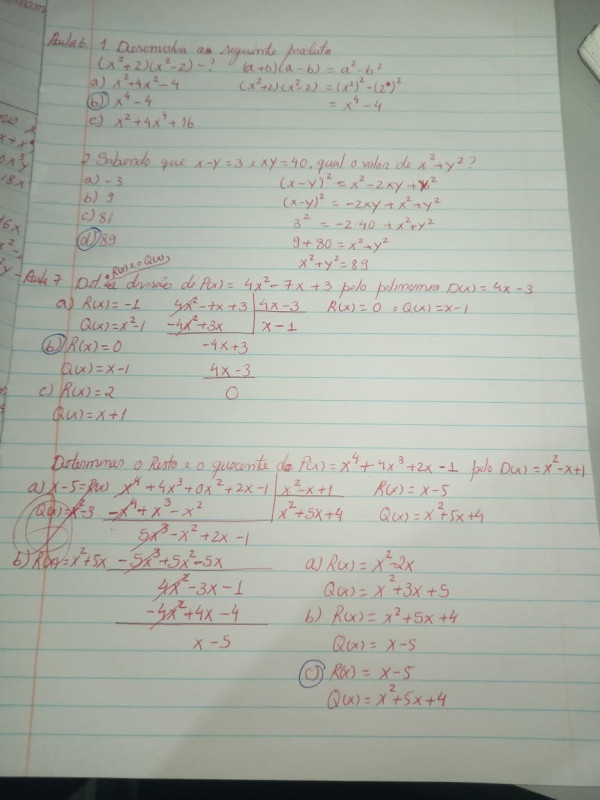 Aula 6 1. Desenvolva as seguinte produto
(x²+2)(x²-2) - ? (a+b)(a-b) = a²-b²
a) x²+4x²-4 (x²+2)(x²-2) = (x²)²-(2)²
b) x⁴-4 = x⁴-4
c) x²+4x⁴+16
2. Sabendo que x-y=3 e xy=40, qual o valor de x²+y²?
a) -3 (x-y)² = x²-2xy+y²
b) 9 (x-y)² = -2xy+x²+y²
c) 81 3² = -2·40+x²+y²
d) 89 9+80 = x²+y²
x²+y²=89
o R(x) e o Q(x)
Aula 7 Det. da divisão de P(x) = 4x²-7x+3 pelo polinomio D(x) = 4x-3
a) R(x) = -1 4x²-7x+3 4x-3 R(x) = 0 e Q(x) = x-1
Q(x) = x²-1 -4x²+3x x-1
b) R(x) = 0 -4x+3
Q(x) = x-1 4x-3
c) R(x) = 2 0
Q(x) = x+1
Determinar o Resto e o quociente de P(x) = x⁴+4x³+2x-1 pelo D(x) = x²-x+1
a) x-5=R(x) x⁴+4x³+0x²+2x-1 x²-x+1 R(x) = x-5
Q(x) = x²-3 -x⁴+x³-x² x²+5x+4 Q(x) = x²+5x+4
5x³-x²+2x-1
b) R(x) = x²+5x -5x³+5x²-5x a) R(x) = x²-2x
4x²-3x-1 Q(x) = x²+3x+5
-4x²+4x-4 b) R(x) = x²+5x+4
x-5 Q(x) = x-5
c) R(x) = x-5
Q(x) = x²+5x+4